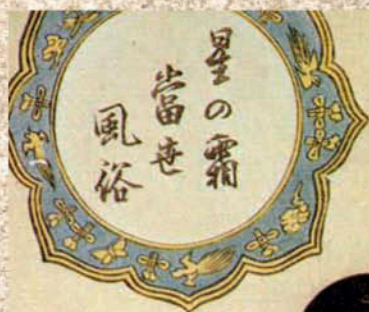 星の霜
當世
風俗